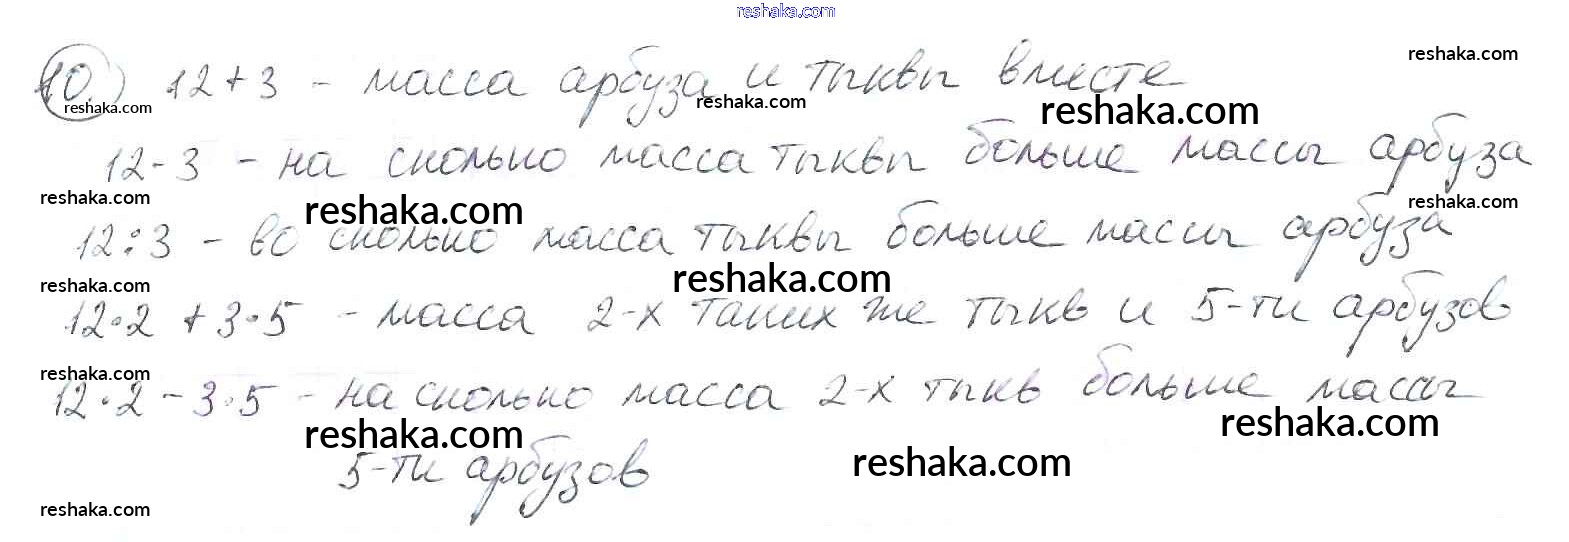 reshaka.com
10.) 12+3 - масса арбуза и тыквы вместе
reshaka.com
reshaka.com
reshaka.com
reshaka.com
12-3 - на сколько масса тыквы больше массы арбуза
reshaka.com
reshaka.com
reshaka.com
12:3 - во сколько масса тыквы больше массы арбуза
reshaka.com
reshaka.com
12·2 + 3·5 - масса 2-х таких же тыкв и 5-ти арбузов
reshaka.com
12·2 - 3·5 - на сколько масса 2-х тыкв больше массы
reshaka.com
reshaka.com
5-ти арбузов
reshaka.com
reshaka.com